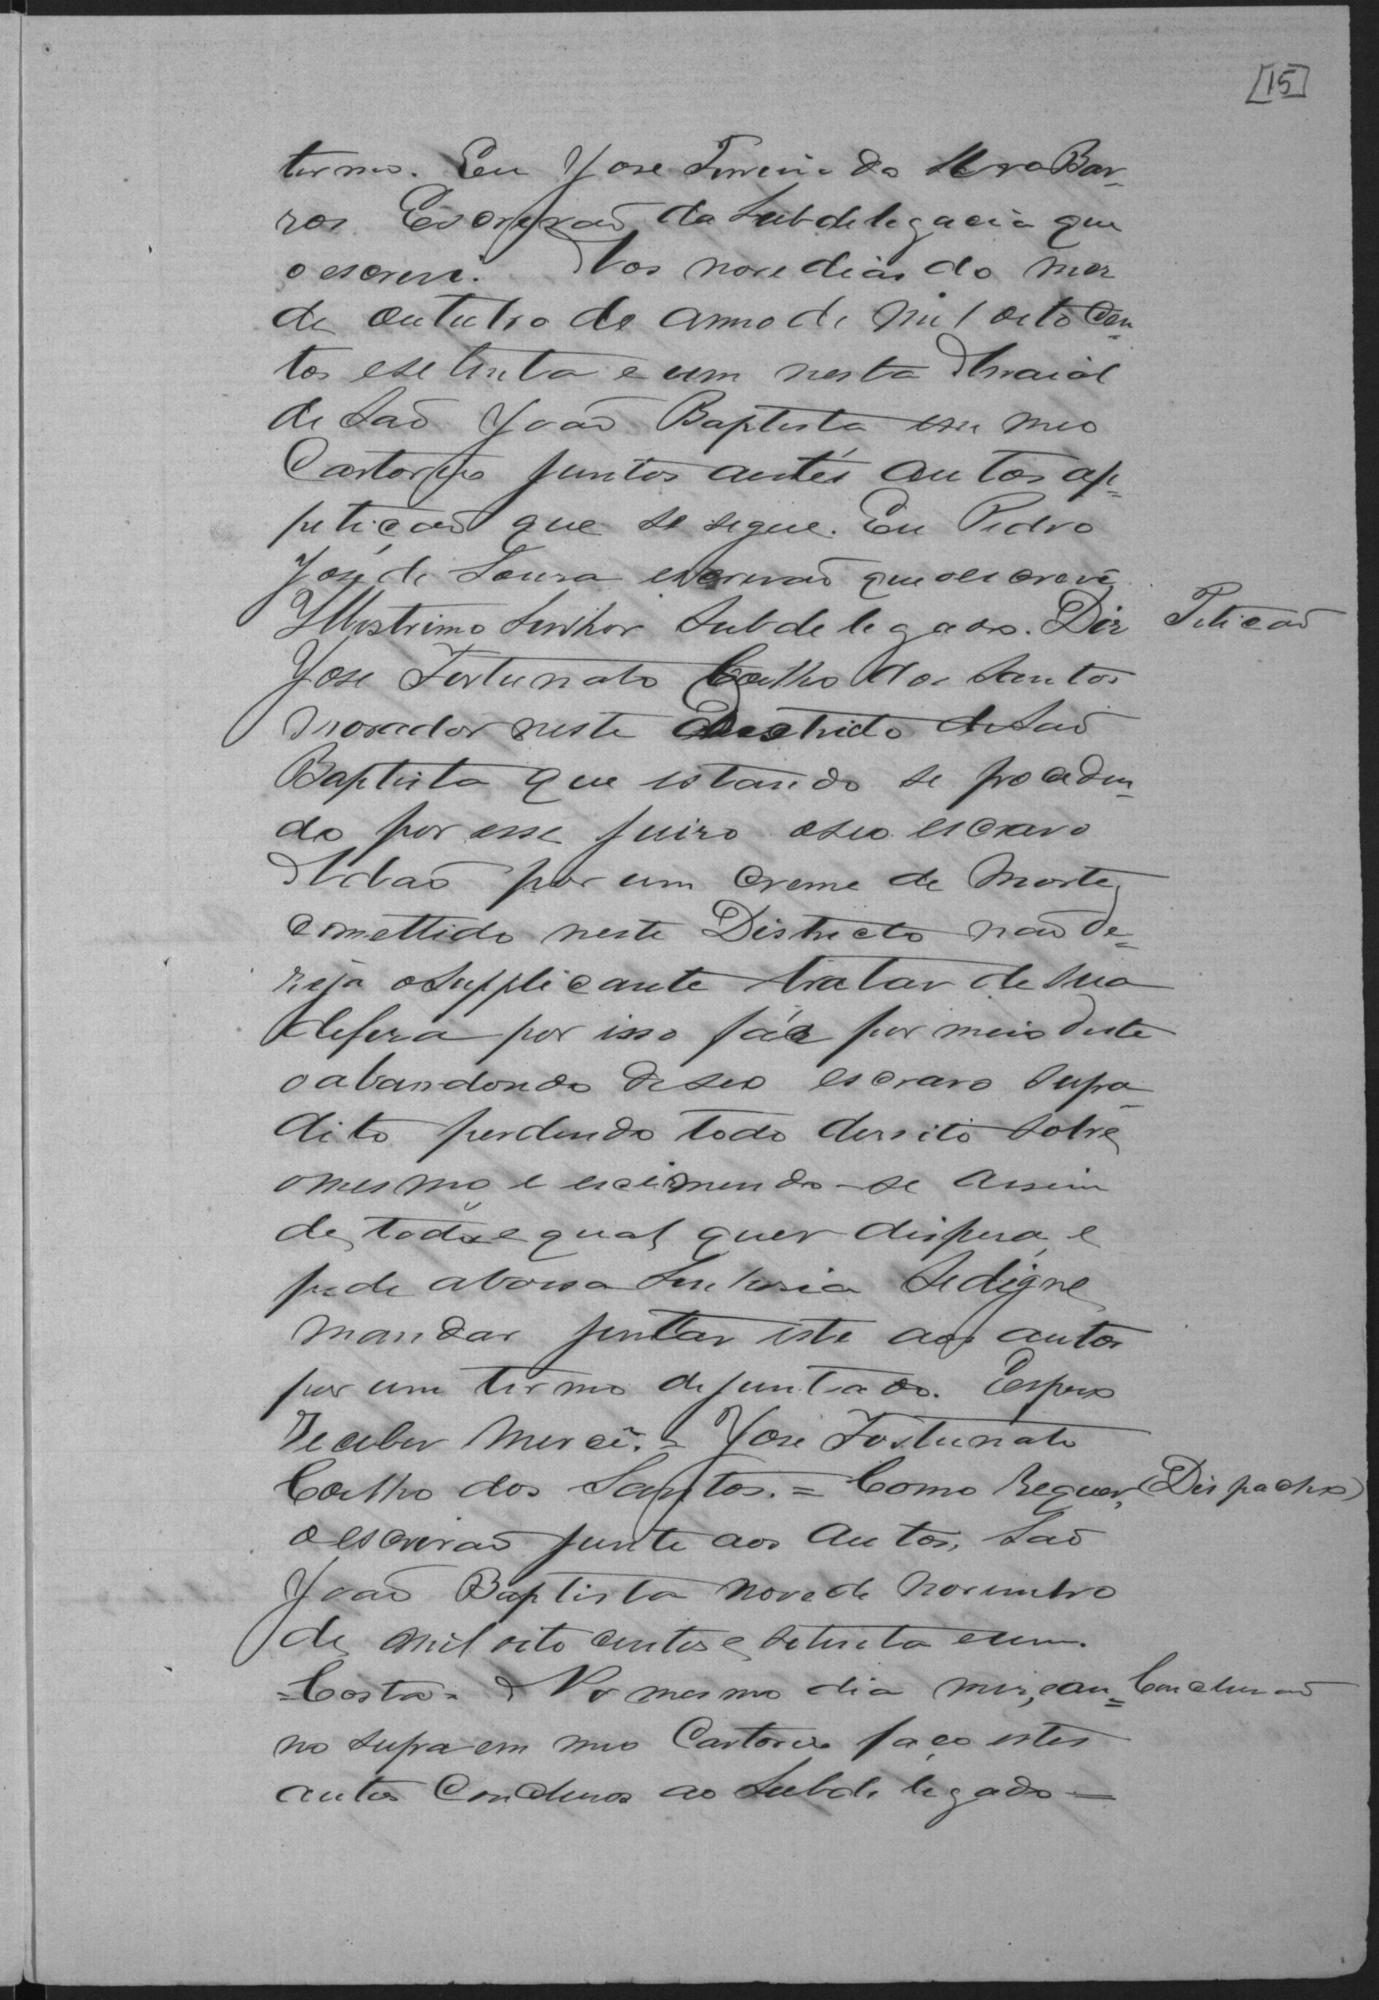 [15]
termo. Eu Jose Ferreira da Silva Bar-
ros Escrivaõ da Subdelegacia que
o escrevi. Aos nove dias do mez
de outubro do anno de mil oito cen-
tos e setenta e um nesta Arraial
de Saõ Joaõ Baptista em meo
Cartorio junto a estes autos ap-
petiçaõ que se segue. Eu Pedro
José de Souza escrivaõ que o escrevi
Illustrimo Senhor Subdelegado. Diz
Petiçaõ
Jose Fortunato Coelho dos Santos
morador neste Destricto de Saõ
Baptista que estando se proceden-
do por esse juizo o seo escravo
Adaõ por um creme de morte
comettido neste Districto naõ de-
zeja o Supplicante tratar de sua
defeza por isso fáz por meio deste
o abandondo de seo escravo supra
dito perdendo todo derreito sobre
o mesmo e eximindo-se assim
de toda e qual quer dispeza, e
pede a Vossa Senhoria Se digne
mandar juntar este aos autos
por um termo de juntado. Espera
Receber Mercê. = Jose Fortunato
Coelho dos Santos. = Como Requer,
(Dispacho)
o escrivaõ junte aos Autos, Saõ
Joaõ Baptista nove de Novembro
de mil oito centos e setenta e um.
= Costa = No mesmo dia mez, e an=
Concluzaõ
no supra em meo Cartorio faço estes
autos Concluzos ao Subdelegado —